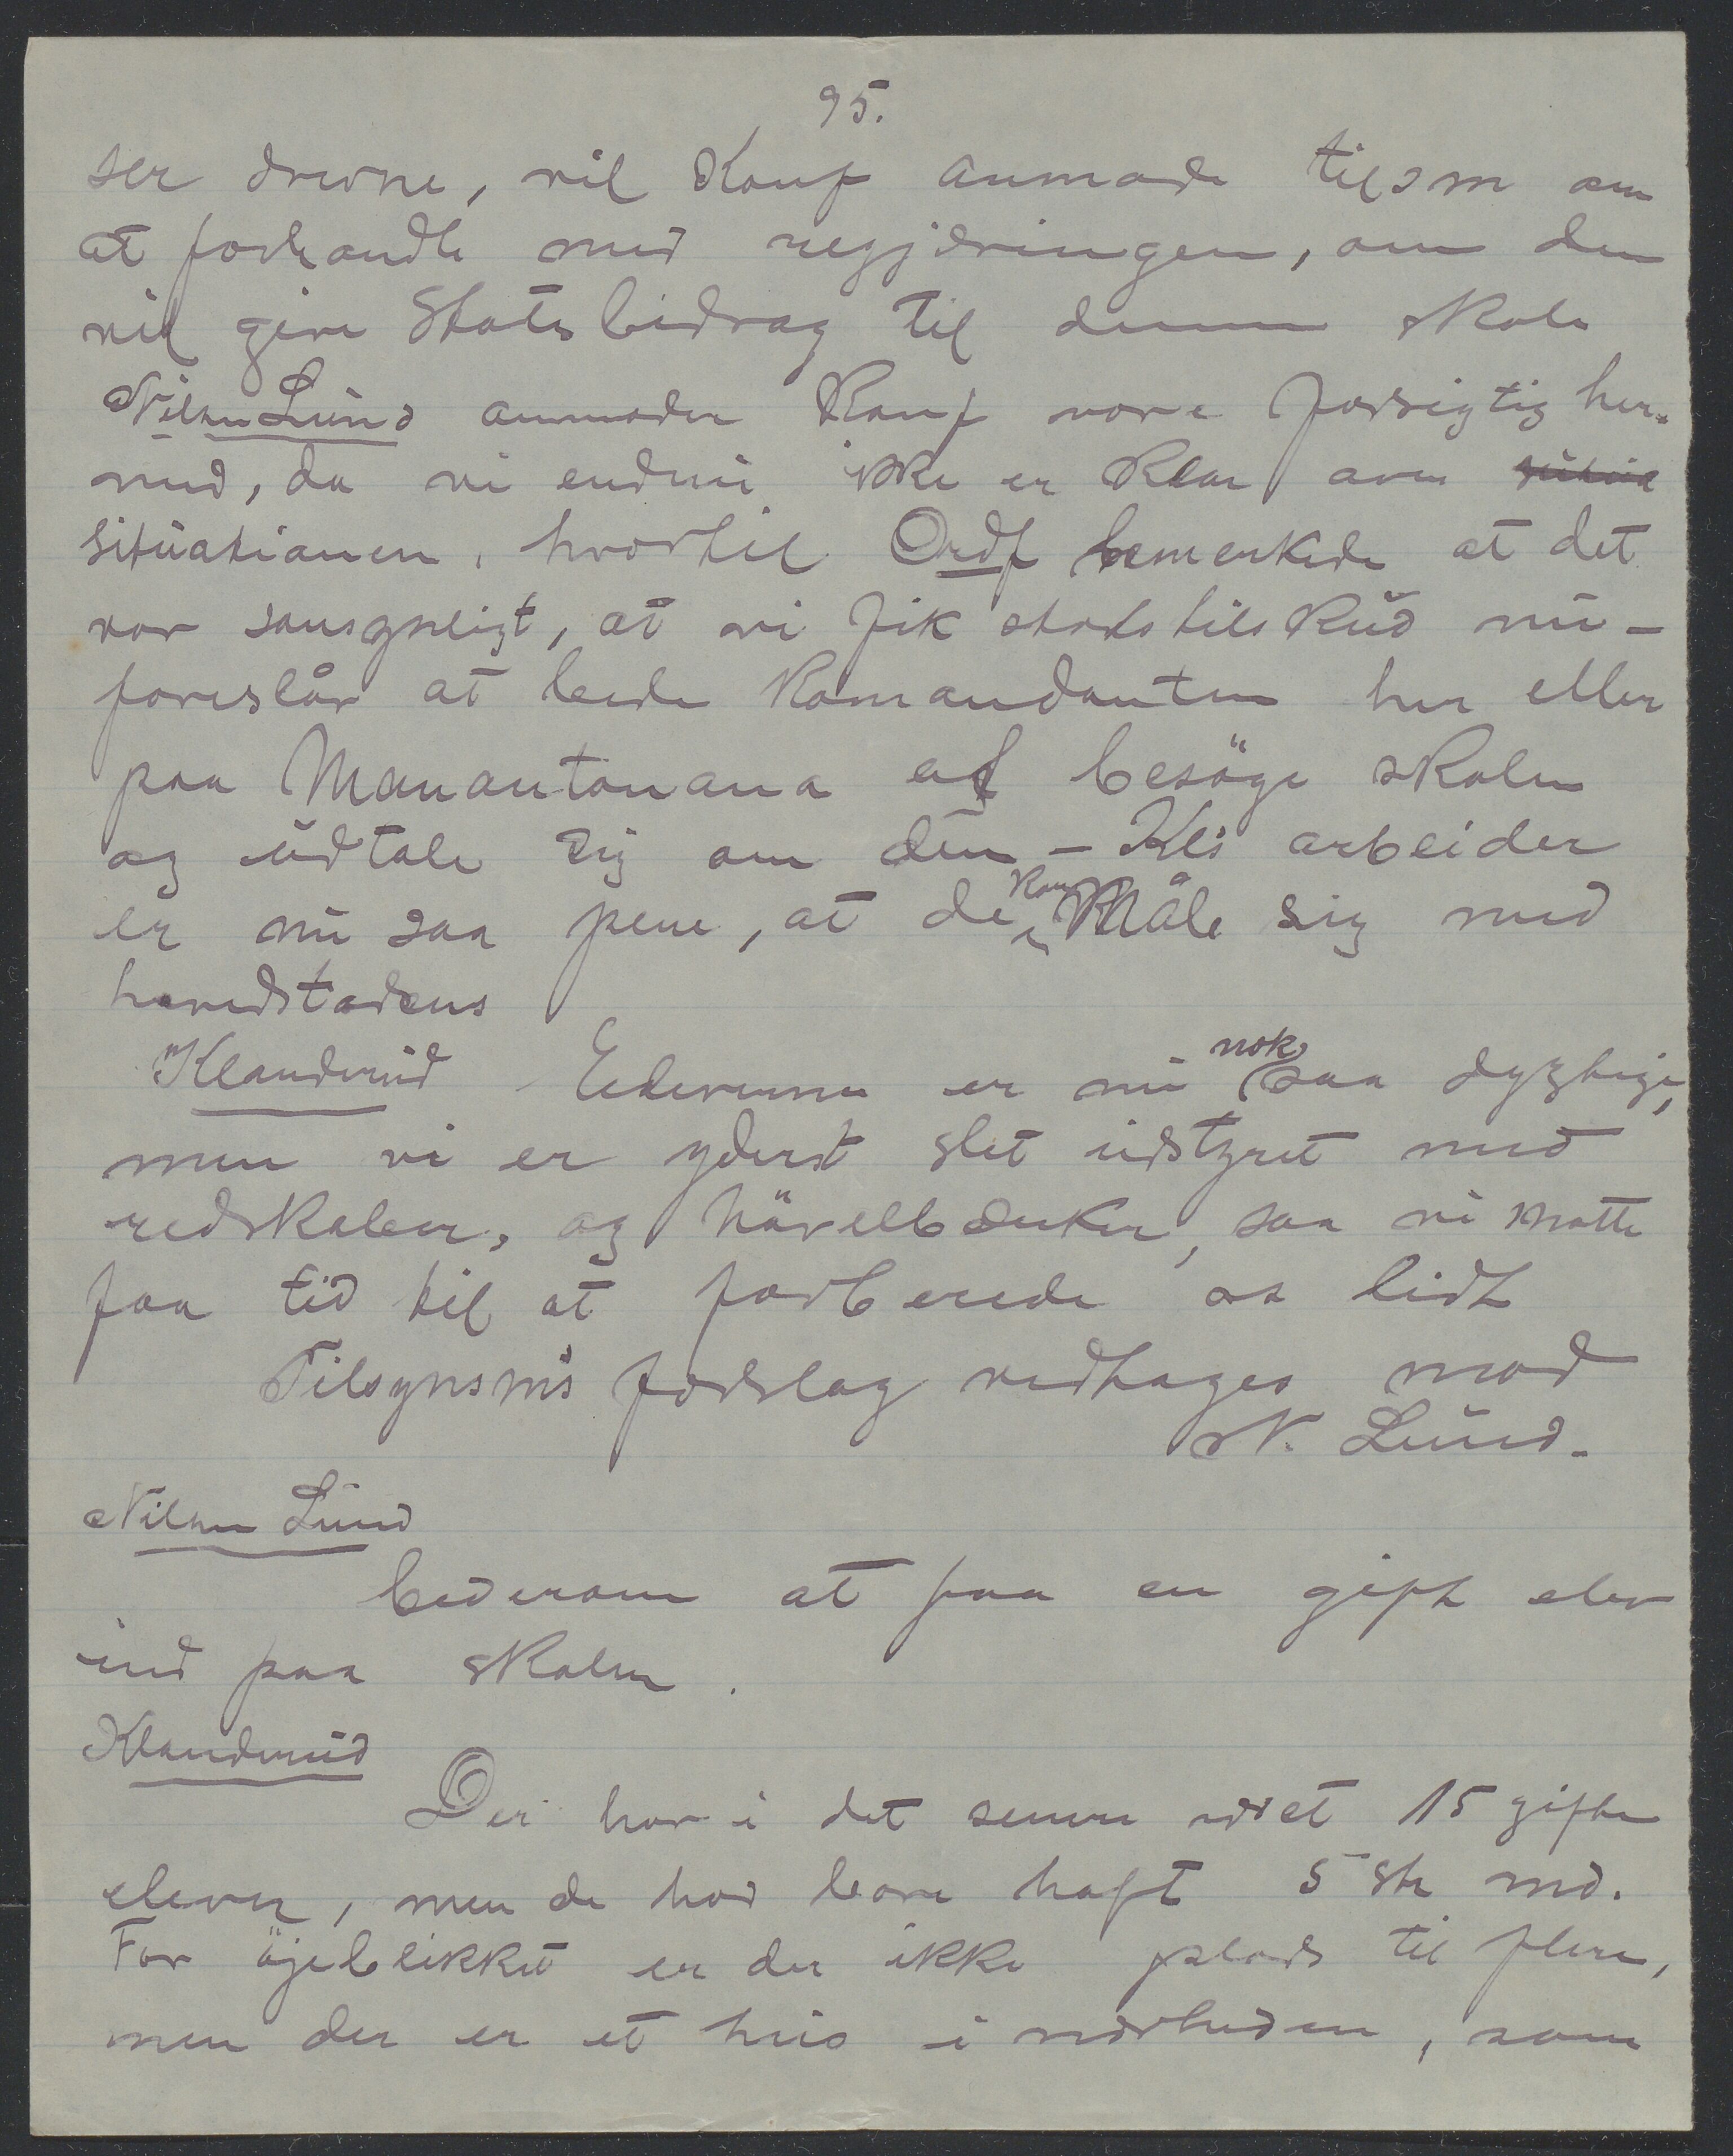 95.
ser drevne, vil Konf anmode tilsm om
at forhandle med regjeringen, om den
vil give Statsbidrag til denne skole
Nilsen Lund anmoder Konf være forsigtig her-
med, da vi endnu ikke er klar over
situationen, hvortil Ordf bemerkede at det
var sansynligt, at vi fik statstilskud nu -
foreslår at bede Komandanten her eller
paa Manantanana at besöge skolen
og udtale sig om den - Kls arbeider
er nu saa pene, at de kan måle sig med
hovedstadens
Klanderud Eleverne er nu nok saa dygtige,
men vi er yderst slet udstyret med
redskaber, og hövelbænker, saa vi måtte
faa tid til at forberede os lidt
Tilsynsms forslag vedtages mod
N. Lund.
Nilsen Lund
bederom at faa en gift elev
ind paa skolen.
Klanderud
Der har i det senere været 15 gifte
elever, men de har bare haft 5 str md.
For öjeblikket er der ikke plads til flere,
men der er et hus i nærheden, som